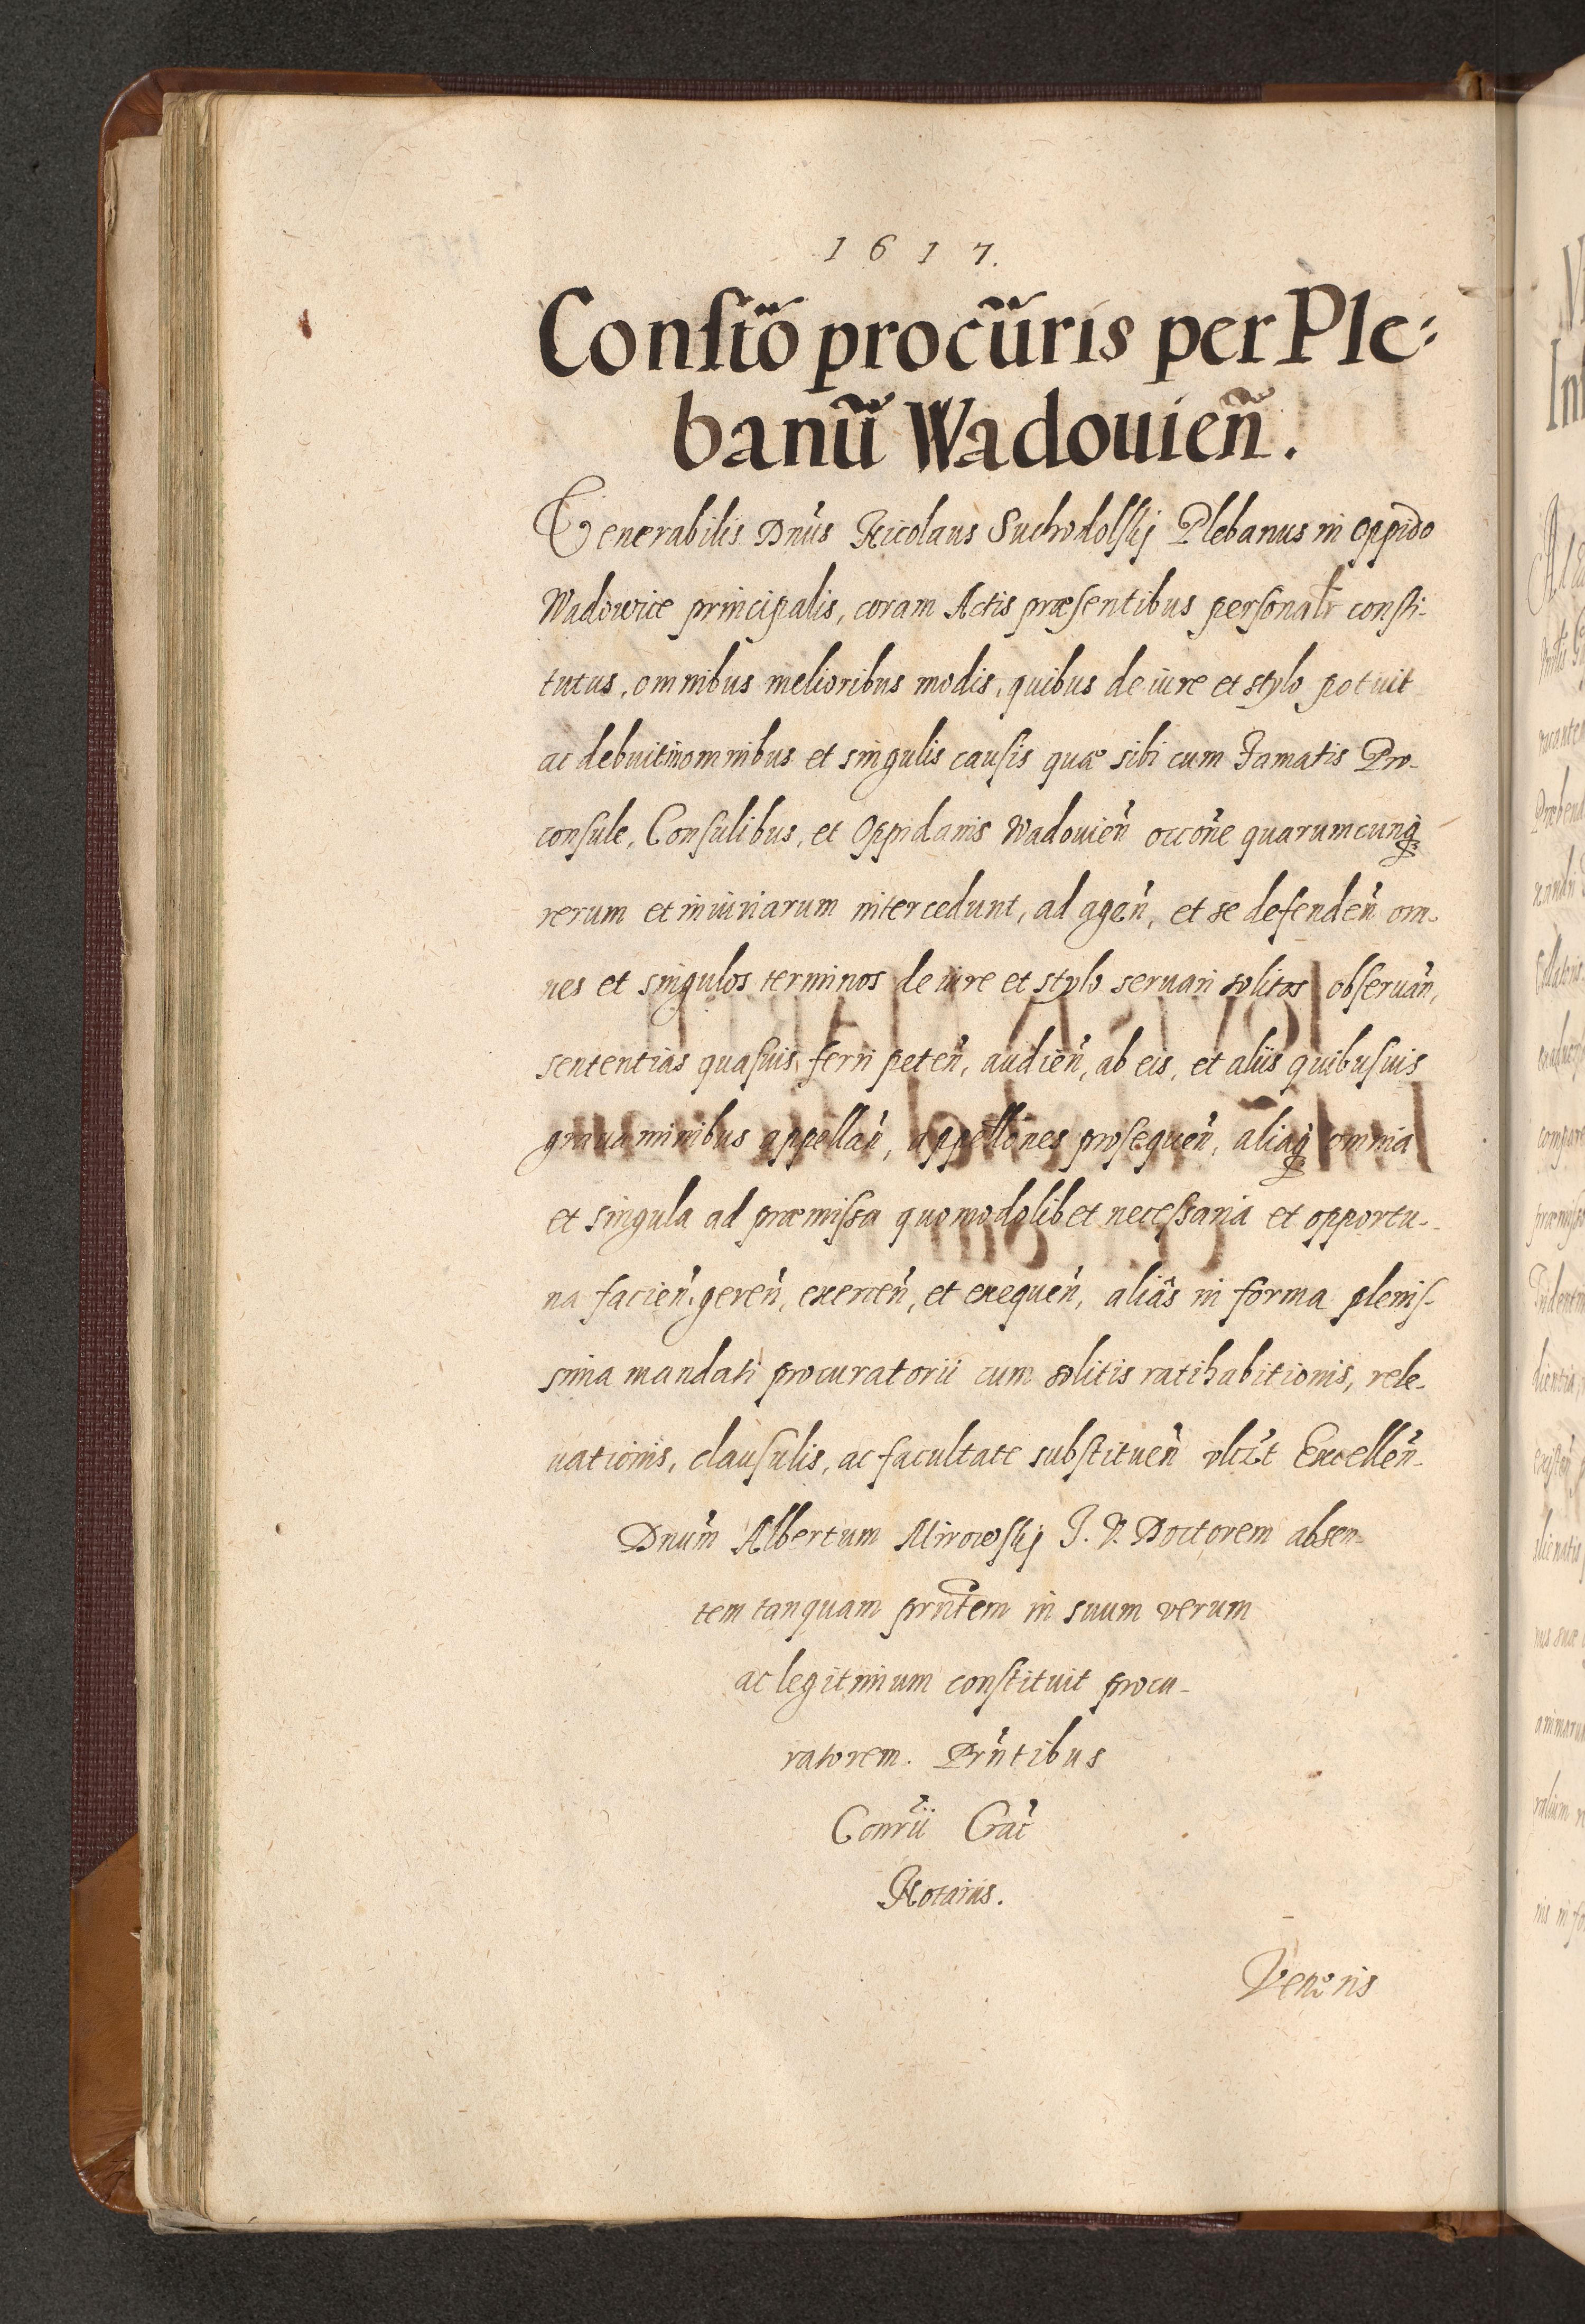 1617.
Constio͠ procu͠ris per Ple:
banu͠ Wadouien͠.
Venerabilis Dnus Nicolaus Suchodolskj Plebanus in oppido
Wadowice principalis, coram Actis præsentibus personalr consti-
tutus, omnibus melioribus modis, quibus de iure et stylo potuit
ac debuit in omnibus et singulis causis quæ sibi cum Famatis Pro-
consule, Consulibus, et Oppidanis Wadouien̉ occone quarumcunq
rerum et iniuriarum intercedunt, ad agen̉, et se defenden̉ om-
nes et singulos terminos de iure et stylo seruari solitos obseruan̉,
sententias quasuis ferri peten̉, audien̉, ab eis, et aliis quibusuis
grauaminibus appellan̉, appellones prosequen̉, aliaq omnia
et singula ad præmissa quomodolibet necessaria et opportu-
na facien̉, geren̉, exercen̉, et exequen̉, aliâs in forma plenis-
sima mandati procuratorii cum solitis ratihabitionis, rele-
uationis, clausulis, ac facultate substituen̉ vlcit Excellen̉-
Dnum Albertum Mirowskj J. V. Doctorem absen-
tem tanquam prntem in suum verum
ac legitimum constituit procu-
ratorem. Prntibus
Conrii Crac
Notariis.
Veneris